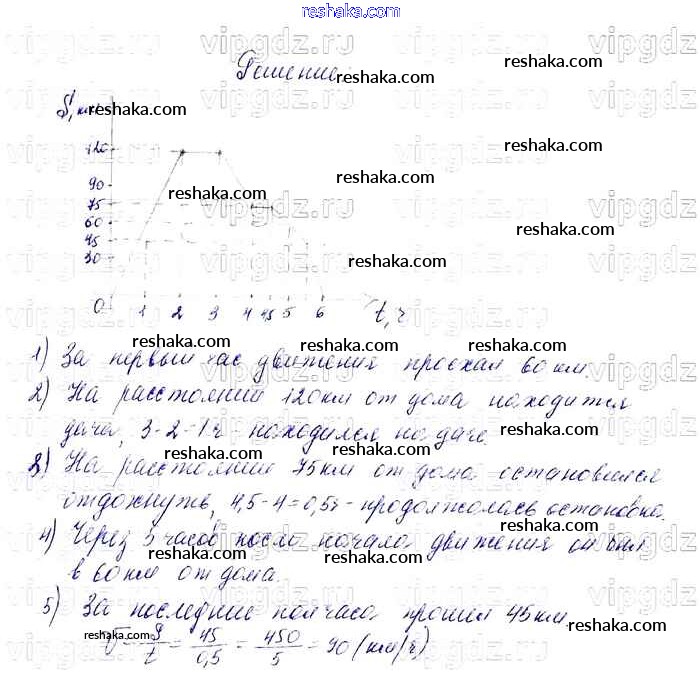 reshaka.com
Решение
S, км
120
90
75
60
45
30
0 1 2 3 4 4,5 5 6 t, ч
1) За первый час движения проехал 60 км.
2) На расстоянии 120 км от дома находится
дача, 3-2=1ч находился на даче
3) На расстоянии 75 км от дома остановился
отдохнуть, 4,5-4=0,5ч - продолжалась остановка.
4) Через 5 часов после начала движения он был
в 60 км от дома.
5) За последние полчаса прошёл 45 км.
V = S/t = 45/0,5 = 450/5 = 90 (км/ч)